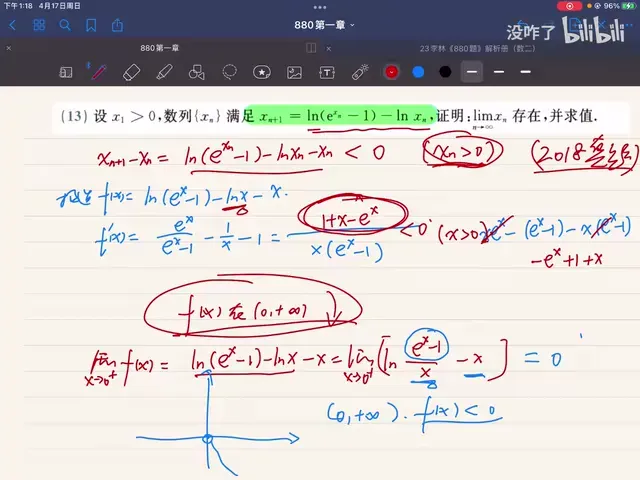 下午1:18 4月17日周日
96%
没咋了 bilibili
880第一章
880第一章
23学林《880题》解析册(数二)
(13) 设 x₁ > 0, 数列{xₙ} 满足 xₙ₊₁ = ln(e^{xₙ} − 1) − ln xₙ, 证明: lim_{n→∞} xₙ 存在, 并求值.
xₙ₊₁ − xₙ = ln(e^{xₙ} − 1) − ln xₙ − xₙ < 0 (xₙ > 0)
f(x) = ln(e^x − 1) − ln x − x.
f'(x) = e^x/(e^x − 1) − 1/x − 1 = (1 + x − e^x)/(x(e^x − 1)) < 0 (x > 0) xe^x − (e^x − 1) − x(e^x − 1)
−e^x + 1 + x
f(x) 在 (0, +∞) ↓
lim_{x→0⁺} f(x) = ln(e^x − 1) − ln x − x = lim_{x→0⁺} [ln (e^x − 1)/x − x] = 0
(0, +∞) . f(x) < 0